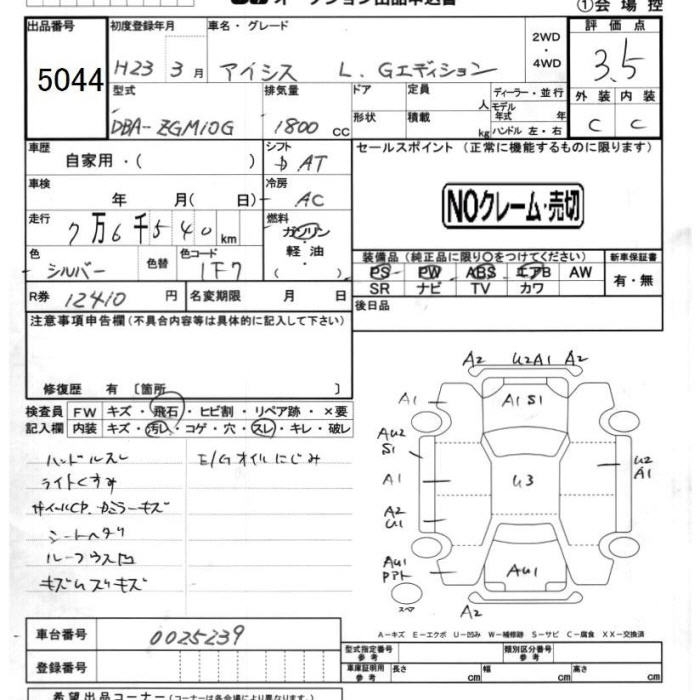 ①会場控
出品番号 初度登録年月 車名・グレード 2WD ・ 4WD 評価点
5044 H23 3月 アイシス L. Gエディション 3.5
型式 排気量 ドア 定員 人 ディーラー・並行 外装 内装
DBA-ZGM10G 1800 CC 形状 積載 kg モデル年式 年 ハンドル 左・右 C C
車歴 自家用・( ) シフト AT セールスポイント (正常に機能するものに限ります)
車検 年 月( 日) 冷房 AC
NOクレーム・売切
走行 7万6千540km 燃料 ガソリン・軽油・( )
色 シルバー 色替 色コード 1F7
装備品 (純正品に限り〇をつけてください) 新車保証書
PS PW ABS エアB AW 有・無
SR ナビ TV カワ
R券 12410円 名変期限 月 日 後日品
注意事項申告欄 (不具合内容等は具体的に記入して下さい)
修復歴 有 [箇所 ]
検査員 FW キズ・飛石・ヒビ割・リペア跡・×要
記入欄 内装 キズ・汚レ・コゲ・穴・スレ・キレ・破レ
ハンドルスレ E/Gオイルにじみ
ライトくすみ
シートヘタリ
A2 U2A1 A2
A1 A1 S1
AU2 S1
A1 U3 U2 A1
A2 U1
AU1 AU1
スペア A2
A-キズ E-エクボ U-凹み W-補修跡 S-サビ C-腐食 XX-交換済
車台番号 0025239
登録番号
型式指定番号 参考 類別区分番号 参考
車庫証明用 参考 長さ cm 幅 cm 高さ cm
希望出品コーナー